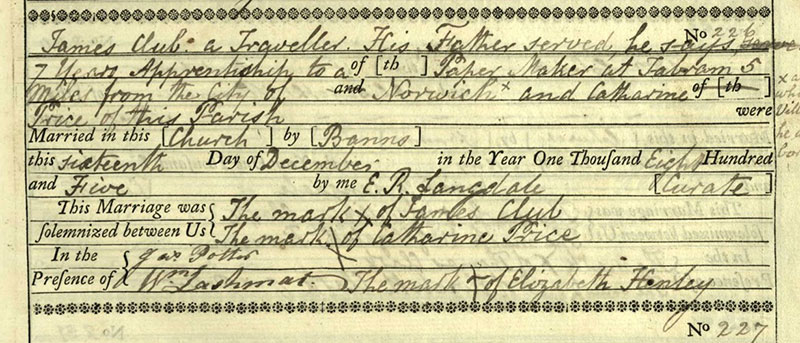 No 226
James Club a Traveller. His Father served he says
7 Years Apprentiship to a of [th ] Paper Maker at Tabram 5
Miles from the City of and Norwich x and Catharine of [th
Price of this Parish were
Married in this [Church] by [Banns]
this sixteenth Day of December in the Year One Thousand Eight Hundred
and Five by me E. R. Langdale [Curate]
This Marriage was The mark x of James Club
solemnized between Us The mark x of Catharine Price
In the Jas Potter
Presence of Wm Lashmar. The mark x of Elizabeth Henley
No 227